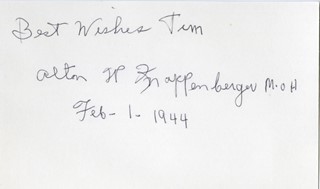 Best Wishes Tim
Alton W Knappenberger M.O H
Feb- 1- 1944